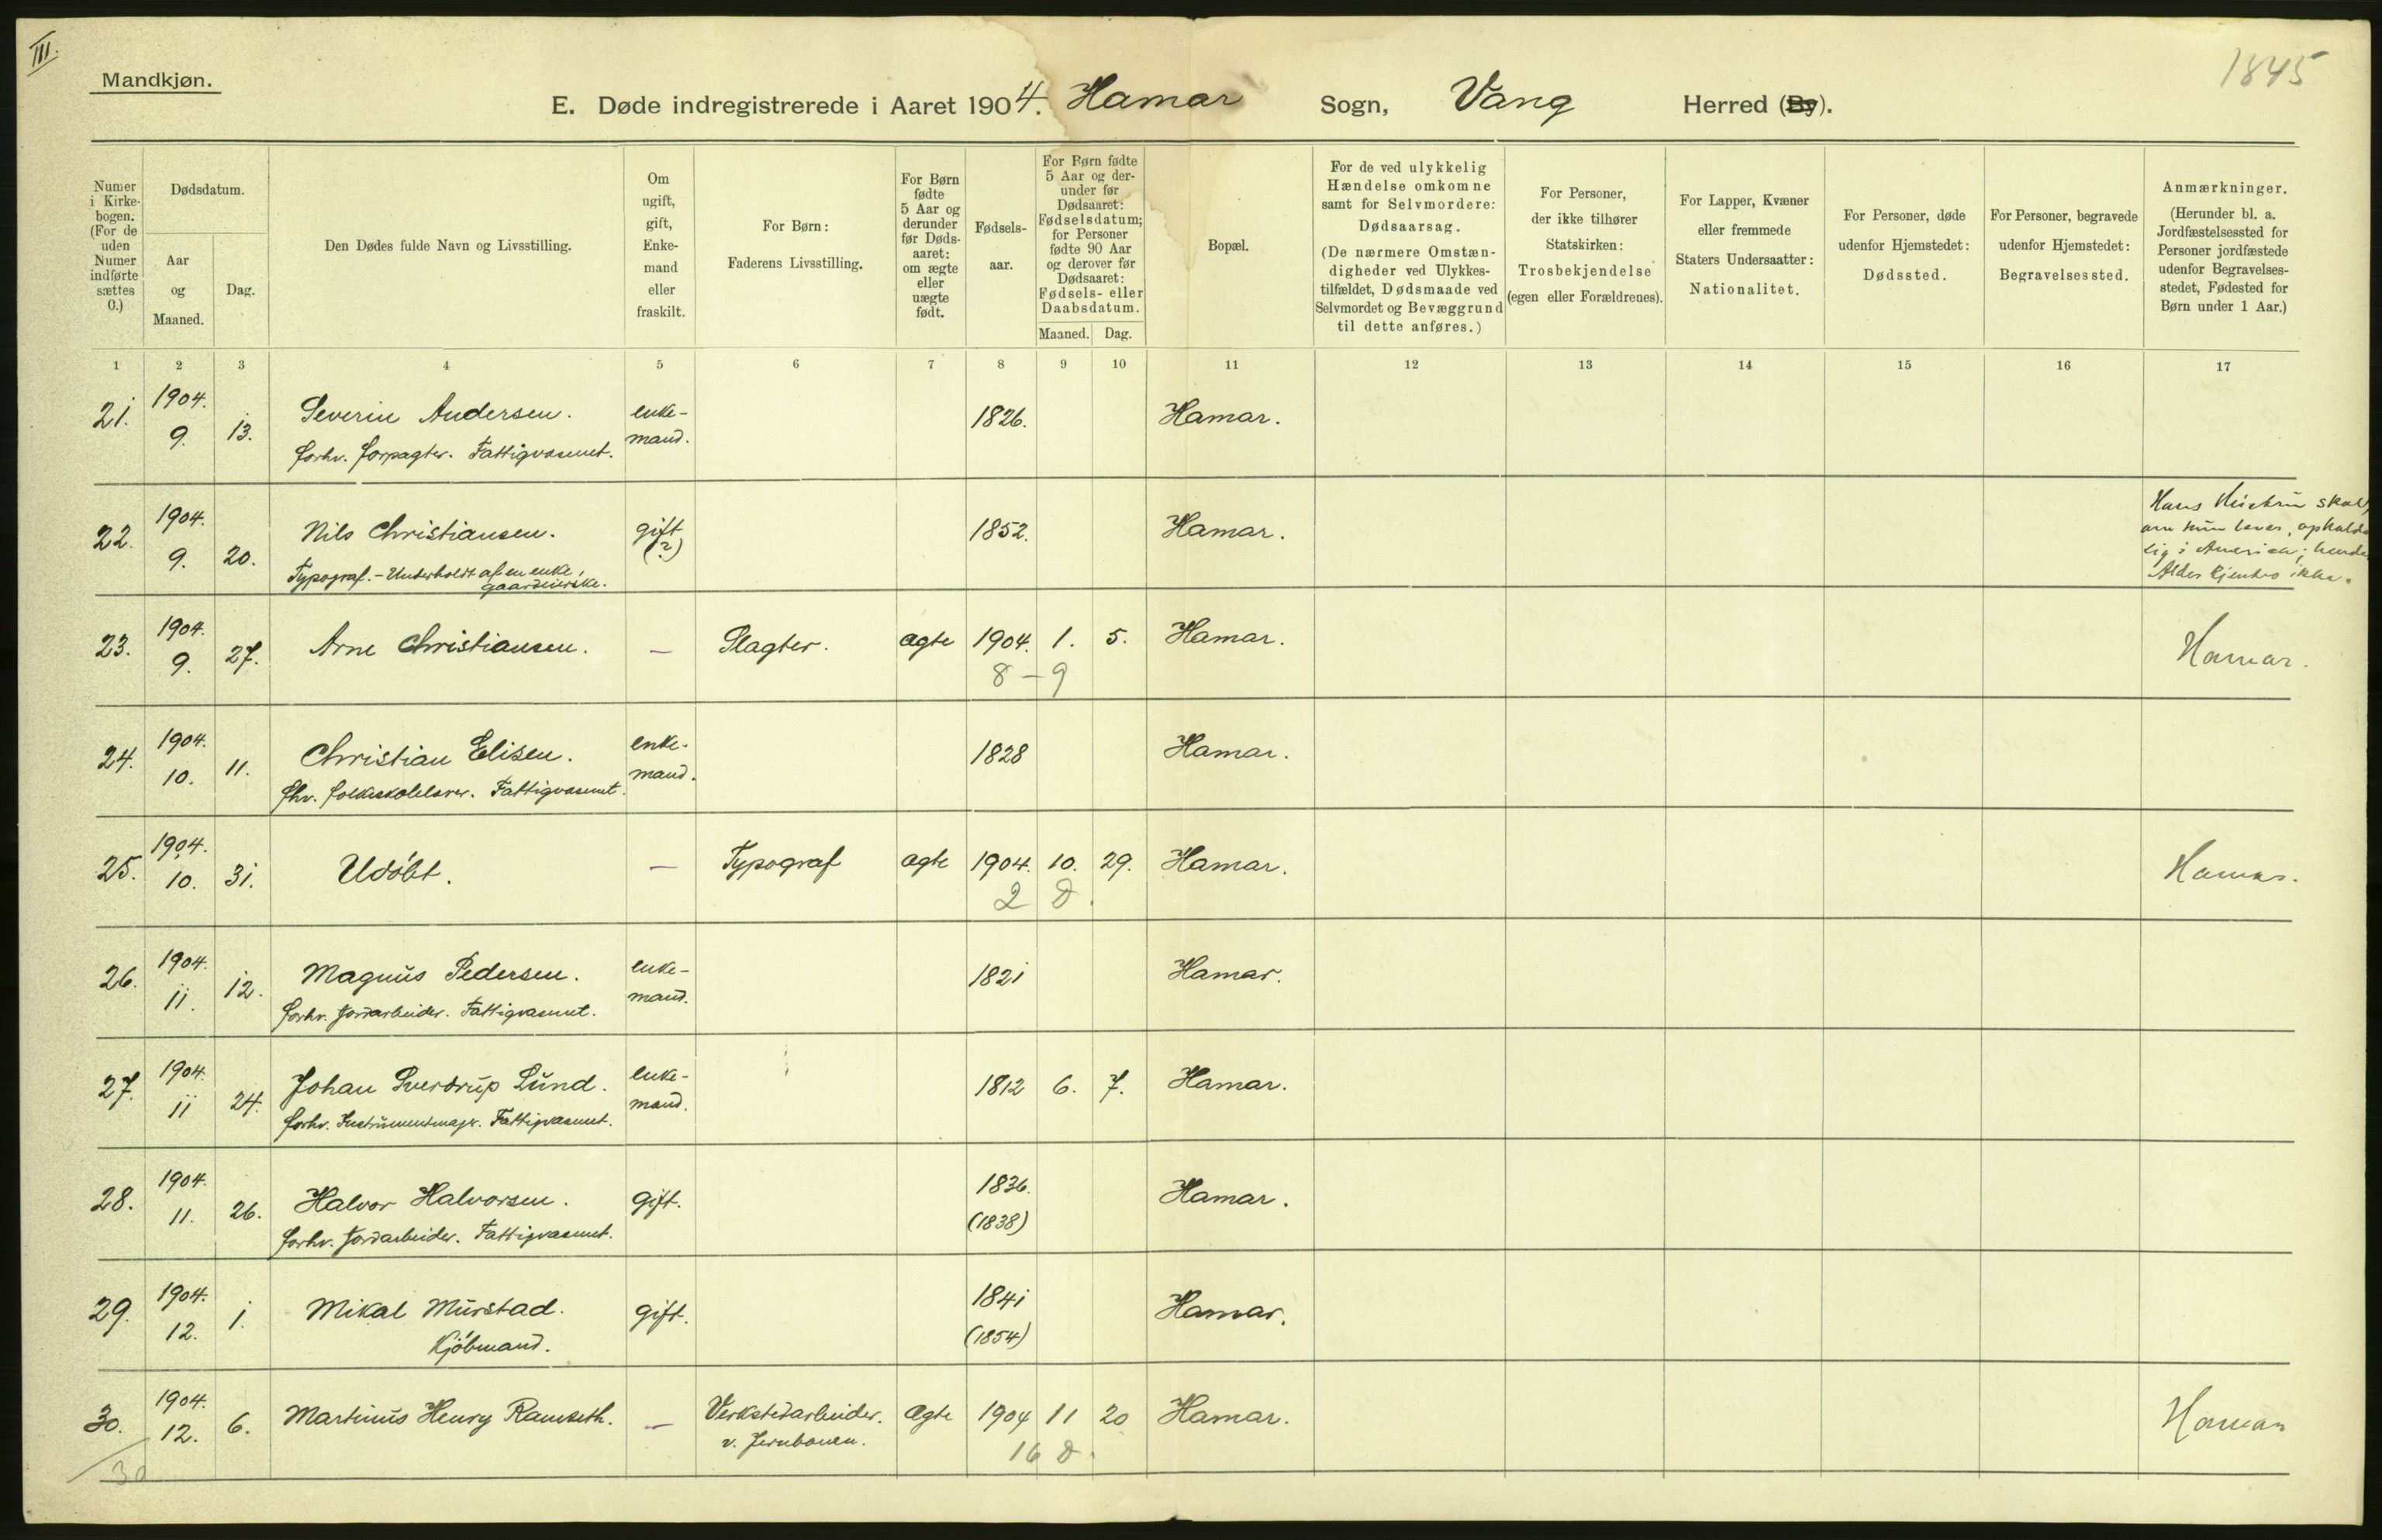 III.
Mandkjøn.
1845
E. Døde indregistrerede i Aaret 1904. Hamar Sogn, Vang Herred (By).
Numer i Kirkebogen. (For de uden Numer indførte sættes 0.)
Dødsdatum.
Aar og Maaned.
Dag.
Den Dødes fulde Navn og Livsstilling.
Om ugift, gift, Enkemand eller fraskilt.
For Børn: Faderens Livsstilling.
For Børn fødte 5 Aar og derunder før Dødsaaret: om ægte eller uægte født.
Fødselsaar.
For Børn fødte 5 Aar og derunder før Dødsaaret: Fødselsdatum; for Personer fødte 90 Aar og derover før Dødsaaret: Fødsels- eller Daabsdatum.
Maaned. Dag.
Bopæl.
For de ved ulykkelig Hændelse omkomne samt for Selvmordere: Dødsaarsag. (De nærmere Omstændigheder ved Ulykkestilfældet, Dødsmaade ved Selvmordet og Bevæggrund til dette anføres.)
For Personer, der ikke tilhører Statskirken: Trosbekjendelse (egen eller Forældrenes).
For Lapper, Kvæner eller fremmede Staters Undersaatter: Nationalitet.
For Personer, døde udenfor Hjemstedet: Dødssted.
For Personer, begravede udenfor Hjemstedet: Begravelsessted.
Anmærkninger. (Herunder bl. a. Jordfæstelsessted for Personer jordfæstede udenfor Begravelsesstedet, Fødested for Børn under 1 Aar.)
1 2 3 4 5 6 7 8 9 10 11 12 13 14 15 16 17
21. 1904. 9. 13. Severin Andersen. enkemand. 1826. Hamar.
forhv. forpagter. Fattigvæsenet.
22. 1904. 9. 20. Nils Christiansen. gift (?) 1852. Hamar.
Typograf. - Underholdt af en enke, gaardeierske.
Hans Hustru skal,
om hun lever, opholde
sig i Amerika; hendes
Alder kjendes ikke.
23. 1904. 9. 27. Arne Christiansen. — Slagter. ægte 1904. 1. 5. Hamar. Hamar.
8 - 9
24. 1904. 10. 11. Christian Elisen. enkemand. 1828 Hamar.
fhv. folkeskolelærer. Fattigvæsenet.
25. 1904. 10. 31. Udøbt. — Typograf ægte 1904. 10. 29. Hamar. Hamar.
2 D.
26. 1904. 11. 12. Magnus Pedersen. enkemand. 1821 Hamar.
forhv. Jordarbeider. Fattigvæsenet.
27. 1904. 11 24. Johan Sverdrup Lund. enkemand. 1812 6. 7. Hamar.
forhv. Instrumentmager. Fattigvæsenet.
28. 1904. 11. 26. Halvor Halvorsen. gift. 1836. (1838) Hamar.
forhv. Jordarbeider. Fattigvæsenet.
29. 1904. 12. 1. Mikal Murstad. gift. 1841 (1854) Hamar.
Kjøbmand.
30. 1904. 12. 6. Martinus Henry Ramseth. — Verkstedarbeider. v. Jernbanen. Ægte 1904 11 20 Hamar. Hamar
16 D.
30